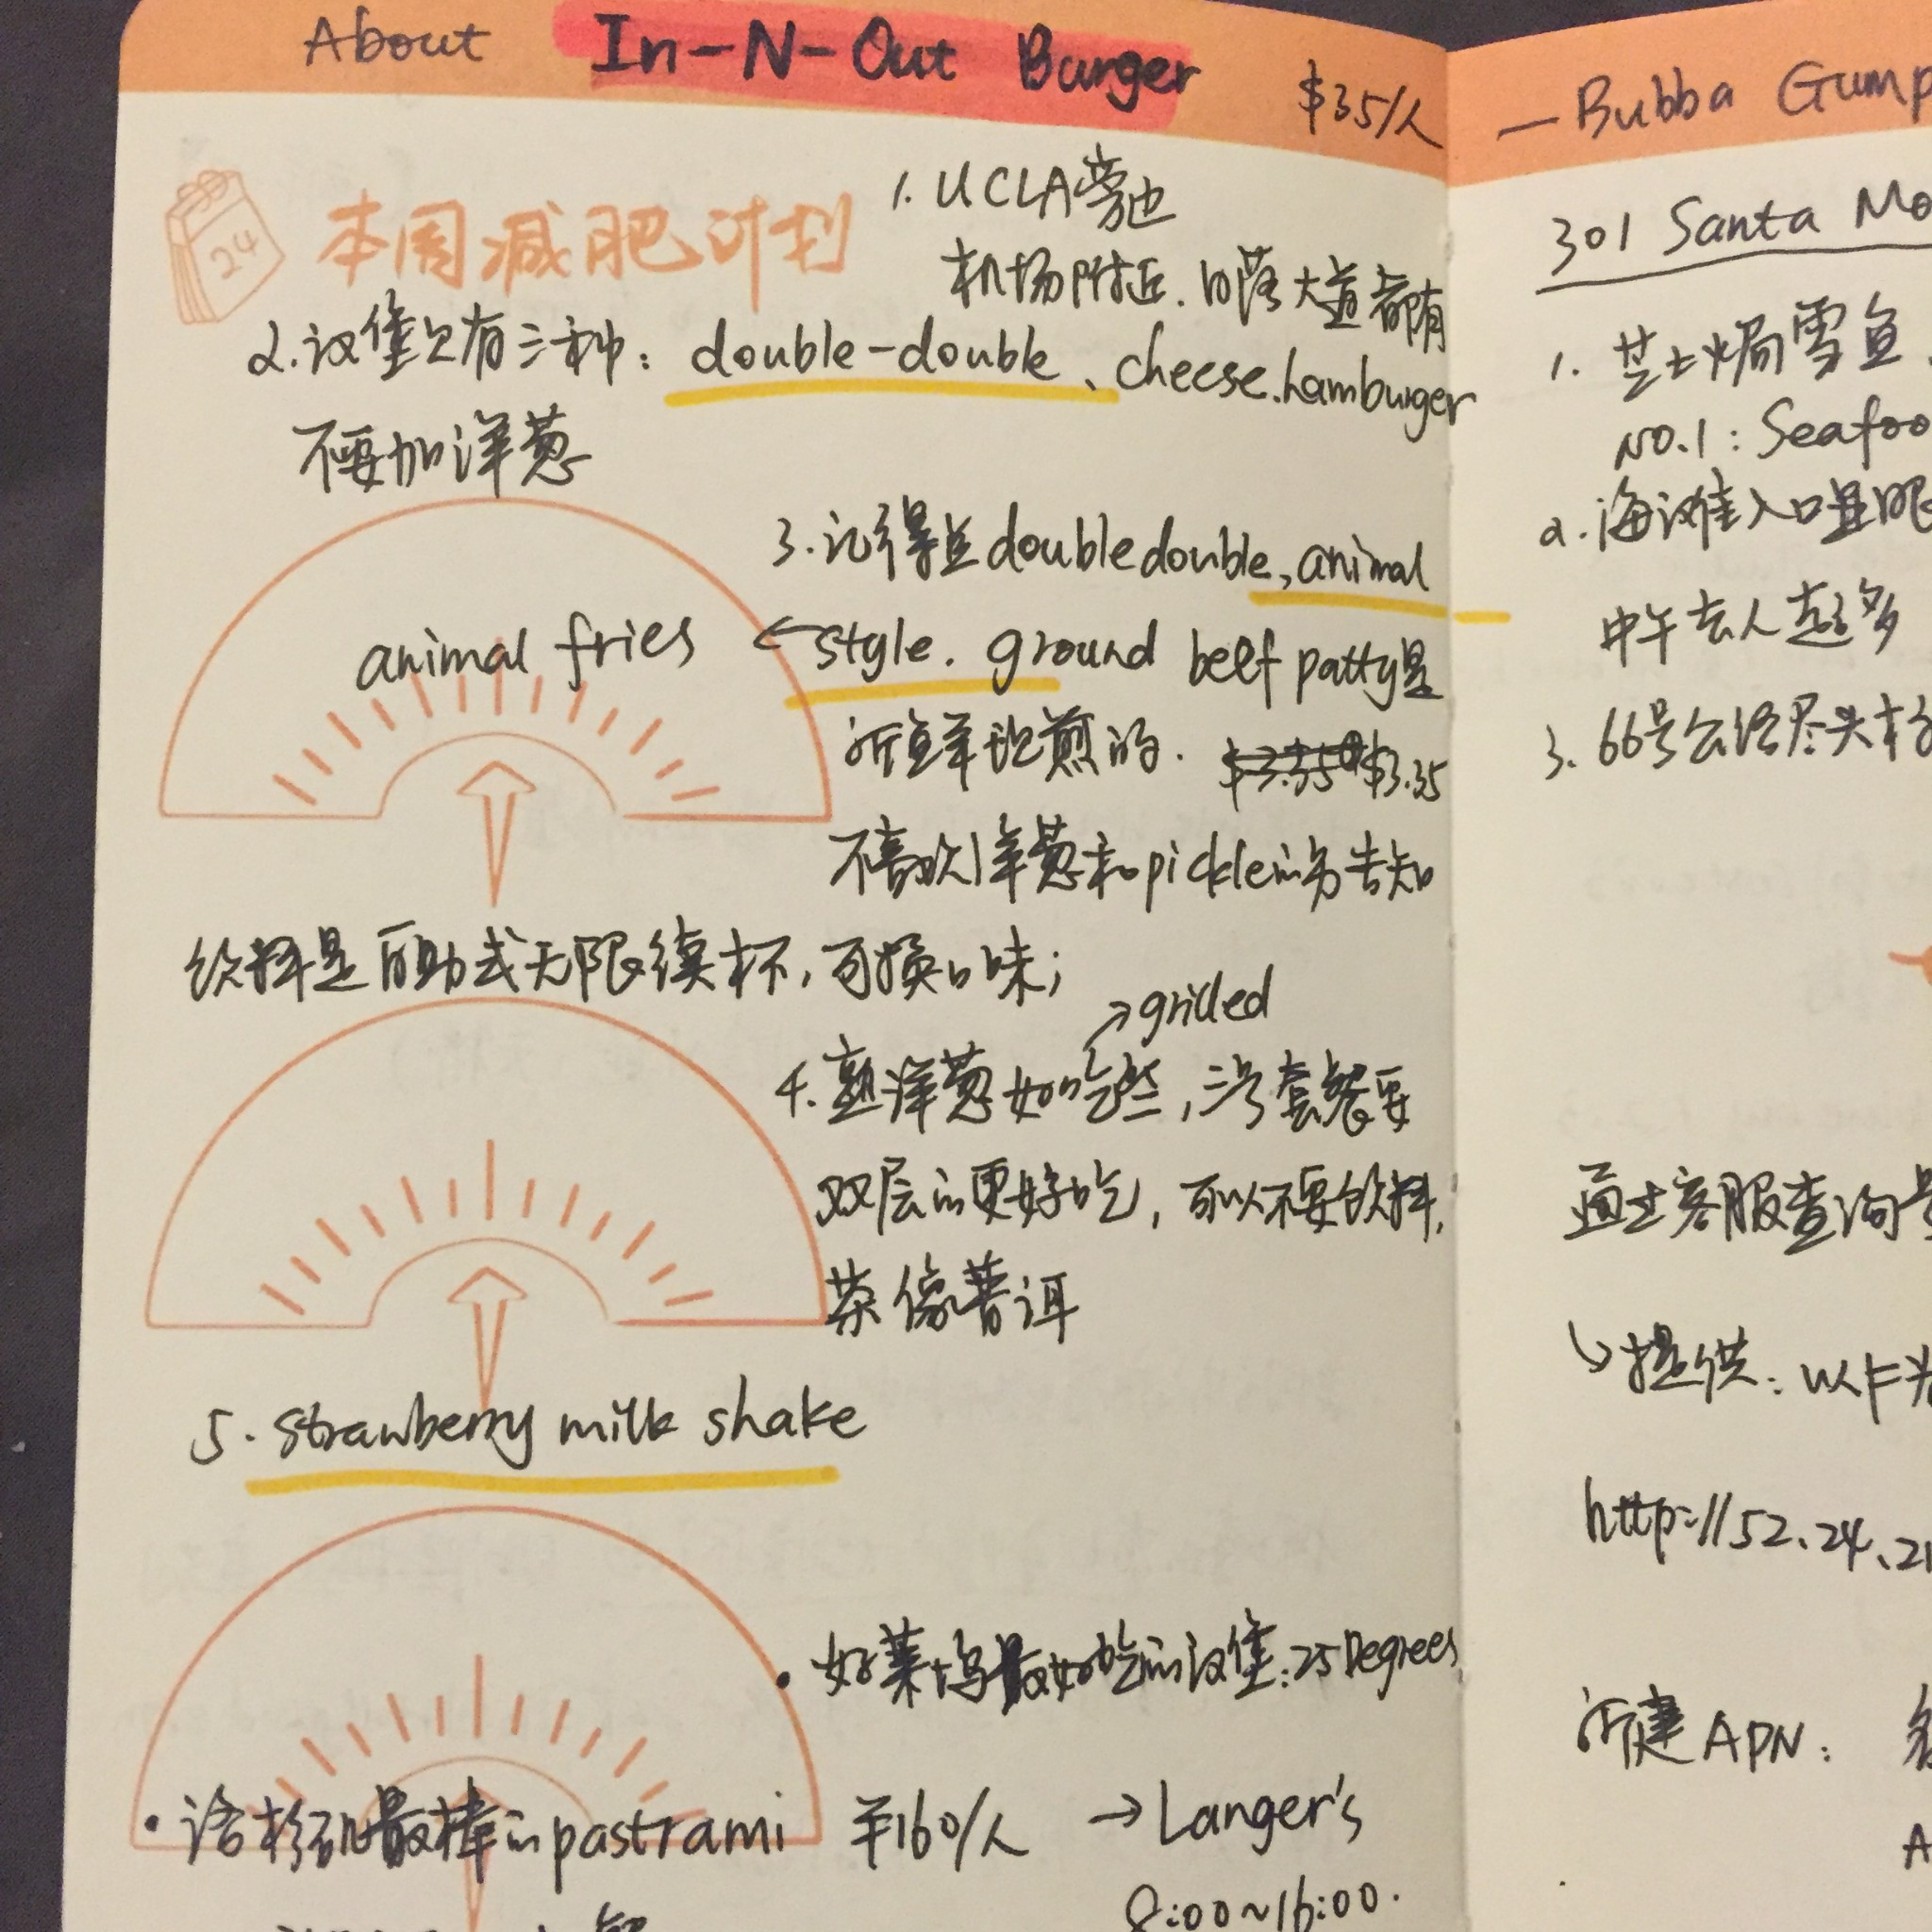 About In-N-Out Burger $35/人
本周减肥计划
24
1. UCLA旁边
机场附近.日落大道都有
2.汉堡只有三种: double-double、cheese.hamburger
不要加洋葱
3.记得点doubledouble,animal
animal fries ←style. ground beef patty是
新鲜现煎的. $3.35
不喜欢洋葱和pickle的务告知
饮料是自助式无限续杯,可换口味;
→grilled
4.熟洋葱好吃些,二号套餐要
双层的更好吃,可以不要饮料,
茶像普洱
5. strawberry milk shake
•好莱坞最好吃的汉堡:25 Degrees
•洛杉矶最棒的pastrami ¥160/人 →Langer's
8:00~16:00.
—Bubba Gump
301 Santa Mo
1. 芝士焗雪鱼、
NO.1: Seafoo
2.海滩佳入口显眼
中午去人超多
3. 66号公路尽头有
通过客服查询
↳提供:以卡
http://52.24.21
新建APN:
A